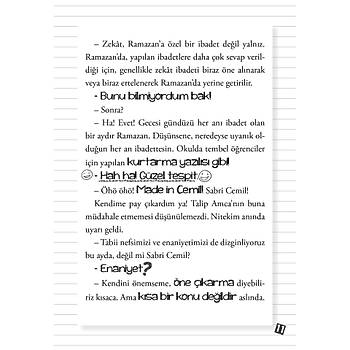 – Zekât, Ramazan'a özel bir ibadet değil yalnız.
Ramazan'da, yapılan ibadetlere daha çok sevap veril-
diği için, genellikle zekât ibadeti biraz öne alınarak
veya biraz ertelenerek Ramazan'da yerine getirilir.
- Bunu bilmiyordum bak!
– Sonra?
– Ha! Evet! Gecesi gündüzü her anı ibadet olan
bir aydır Ramazan. Düşünsene, neredeyse uyanık ol-
duğun her an ibadettesin. Okulda tembel öğrenciler
için yapılan kurtarma yazılısı gibi!
- Hah ha! Güzel tespit.
– Öhö öhö! Made in Cemil! Sabri Cemil!
Kendime pay çıkardım ya! Talip Amca'nın buna
müdahale etmemesi düşünülemezdi. Nitekim anında
uyarı geldi.
– Tabii nefsimizi ve enaniyetimizi de dizginliyoruz
bu ayda, değil mi Sabri Cemil?
- Enaniyet?
– Kendini önemseme, öne çıkarma diyebili-
riz kısaca. Ama kısa bir konu değildir aslında.